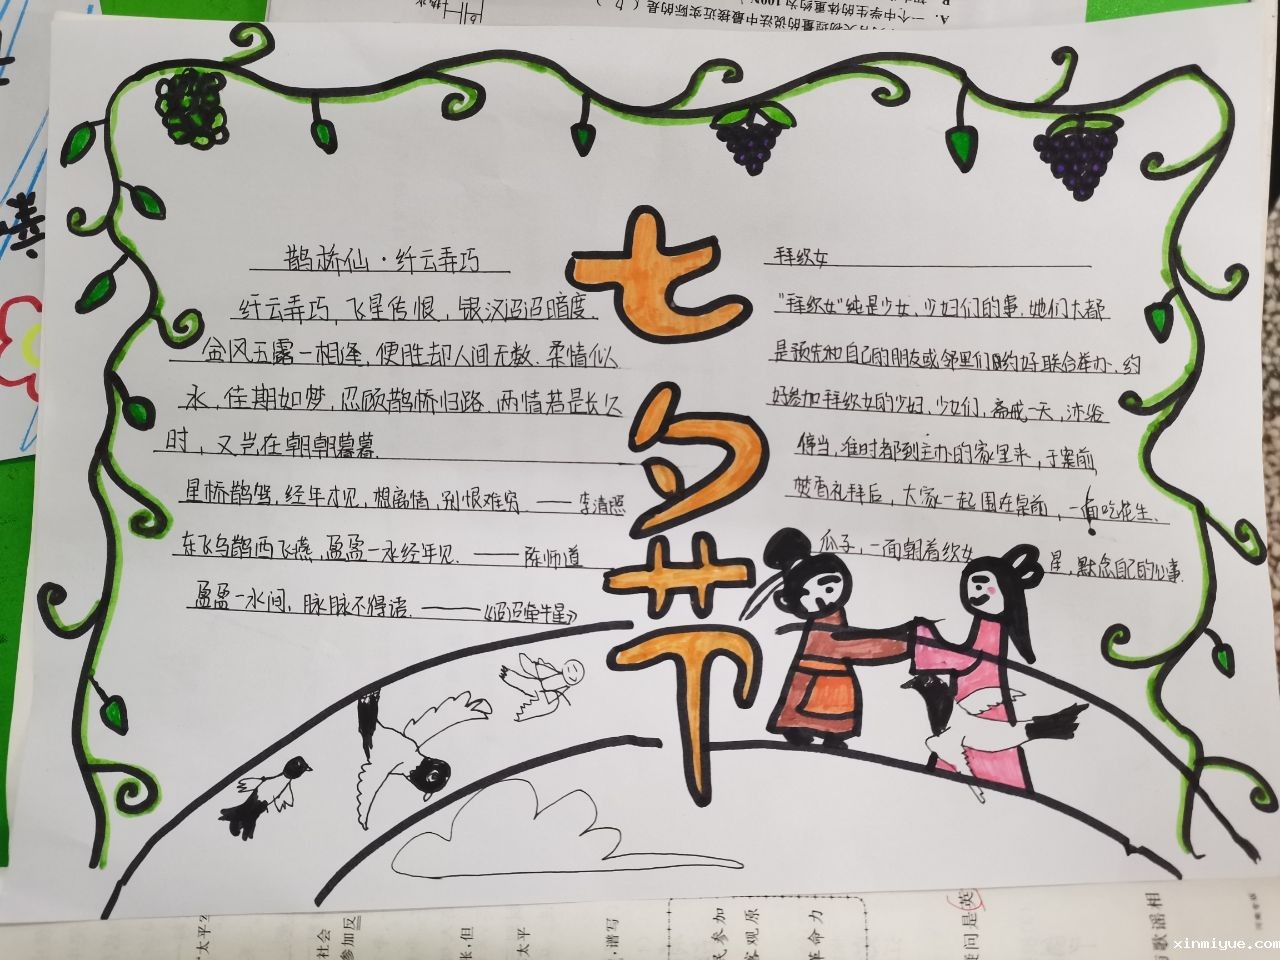 鹊桥仙·纤云弄巧
纤云弄巧,飞星传恨,银汉迢迢暗度.
金风玉露一相逢,便胜却人间无数.柔情似
水,佳期如梦,忍顾鹊桥归路.两情若是长久
时,又岂在朝朝暮暮.
星桥鹊驾,经年才见,想离情,别恨难穷.——李清照
东飞乌鹊西飞燕,盈盈一水经年见.——陈师道
盈盈一水间,脉脉不得语.——《迢迢牵牛星》
七夕节
拜织女
"拜织女"纯是少女、少妇们的事.她们大都
是预先和自己的朋友或邻里们约好联合举办.约
好参加拜织女的少妇、少女们,斋戒一天,沐浴
停当,准时都到主办的家里来,于案前
焚香礼拜后,大家一起围在桌前,一面吃花生、
瓜子,一面朝着织女星,默念自己的心事.
A. 一个中学生的体重约为100N
社会
参加反
太平
谱写
民参加
客观原
革命力
问是英
歌谣相
xinmiyue.com